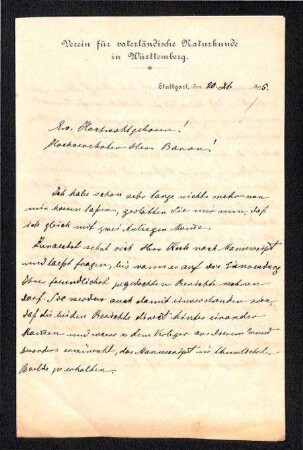 Verein für vaterländische Naturkunde
in Württemberg.
Stuttgart, den 20. XI.
Ew. Hochwohlgeboren!
Hochverehrter Herr Baron!
Ich habe schon sehr lange nichts mehr von
mir hören lassen, gestatten Sie mir nun, daß
ich gleich mit zwei Anliegen komme.
Zunächst sehnt sich Herr Koch nach Manuscript
und läßt fragen, bis wann er auf die Einsendung
Ihres freundlichst zugedachten Berichts rechnen
darf. Sie werden auch damit einverstanden sein,
daß die beiden Berichte direkt hinter einander
kommen und wäre es dem Verleger aus diesem Grund
besonders erwünscht, das Manuscript in thunlichster
Bälde zu erhalten.